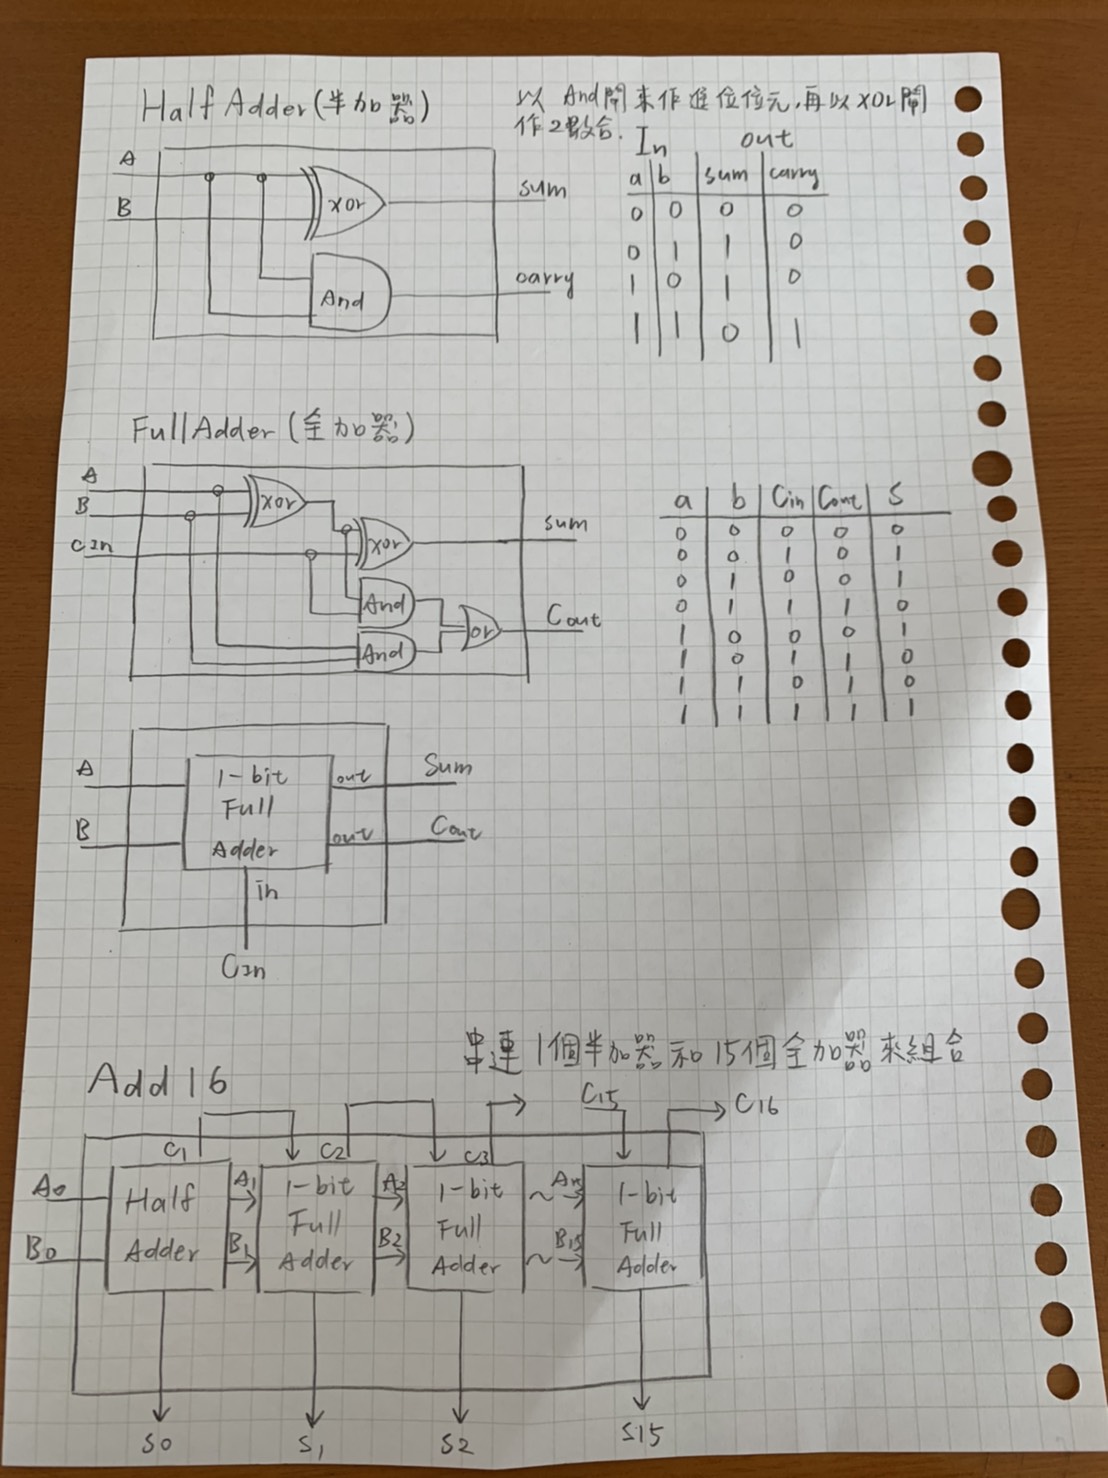 Half Adder (半加器)
以 And閘來作進位位元,再以XOR閘
作2數合.
In out
a b sum carry
0 0 0 0
0 1 1 0
1 0 1 0
1 1 0 1
A
B
xor
And
sum
carry
Full Adder (全加器)
A
B
CIn
xor
xor
And
And
or
sum
Cout
a b Cin Cout S
0 0 0 0 0
0 0 1 0 1
0 1 0 0 1
0 1 1 1 0
1 0 0 0 1
1 0 1 1 0
1 1 0 1 0
1 1 1 1 1
A
B
1-bit
Full
Adder
out
out
in
Sum
Cout
CIn
串連1個半加器和15個全加器來組合
Add16
C1 C2 C3 C15 C16
A0
B0
Half
Adder
A1
B1
1-bit
Full
Adder
A2
B2
1-bit
Full
Adder
B15
1-bit
Full
Adder
S0 S1 S2 S15